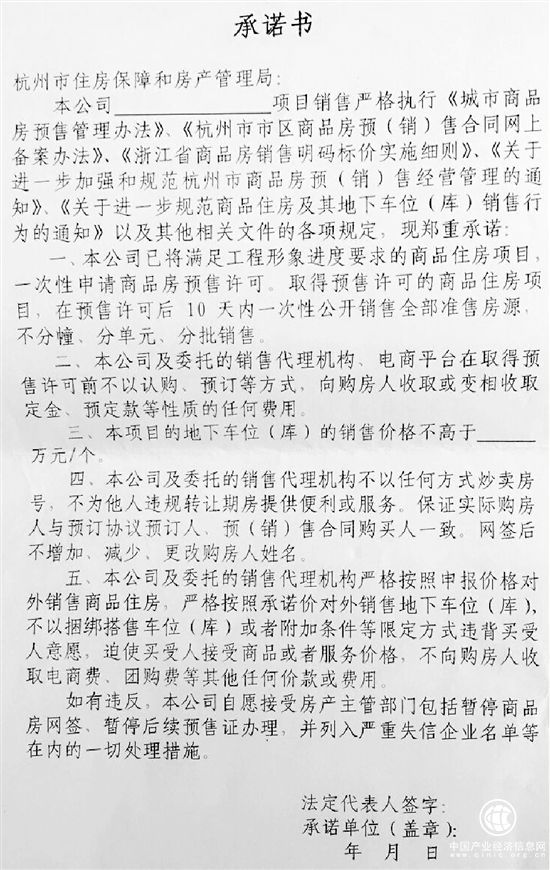 承诺书
杭州市住房保障和房产管理局：
本公司____________项目销售严格执行《城市商品
房预售管理办法》、《杭州市市区商品房预（销）售合同网上
备案办法》、《浙江省商品房销售明码标价实施细则》、《关于
进一步加强和规范杭州市商品房预（销）售经营管理的通
知》、《关于进一步规范商品住房及其地下车位（库）销售行
为的通知》以及其他相关文件的各项规定，现郑重承诺：
一、本公司已将满足工程形象进度要求的商品住房项目，
一次性申请商品房预售许可。取得预售许可的商品住房项
目，在预售许可后 10 天内一次性公开销售全部准售房源，
不分幢、分单元、分批销售。
二、本公司及委托的销售代理机构、电商平台在取得预
售许可前不以认购、预订等方式，向购房人收取或变相收取
定金、预定款等性质的任何费用。
三、本项目的地下车位（库）的销售价格不高于______
万元/个。
四、本公司及委托的销售代理机构不以任何方式炒卖房
号，不为他人违规转让期房提供便利或服务。保证实际购房
人与预订协议预订人、预（销）售合同购买人一致。网签后
不增加、减少、更改购房人姓名。
五、本公司及委托的销售代理机构严格按照申报价格对
外销售商品住房，严格按照承诺价对外销售地下车位（库），
不以捆绑搭售车位（库）或者附加条件等限定方式违背买受
人意愿，迫使买受人接受商品或者服务价格，不向购房人收
取电商费、团购费等其他任何价款或费用。
如有违反，本公司自愿接受房产主管部门包括暂停商品
房网签、暂停后续预售证办理，并列入严重失信企业名单等
在内的一切处理措施。
法定代表人签字：
承诺单位（盖章）：
年 月 日
中国产业经济信息网
www.cinic.org.cn